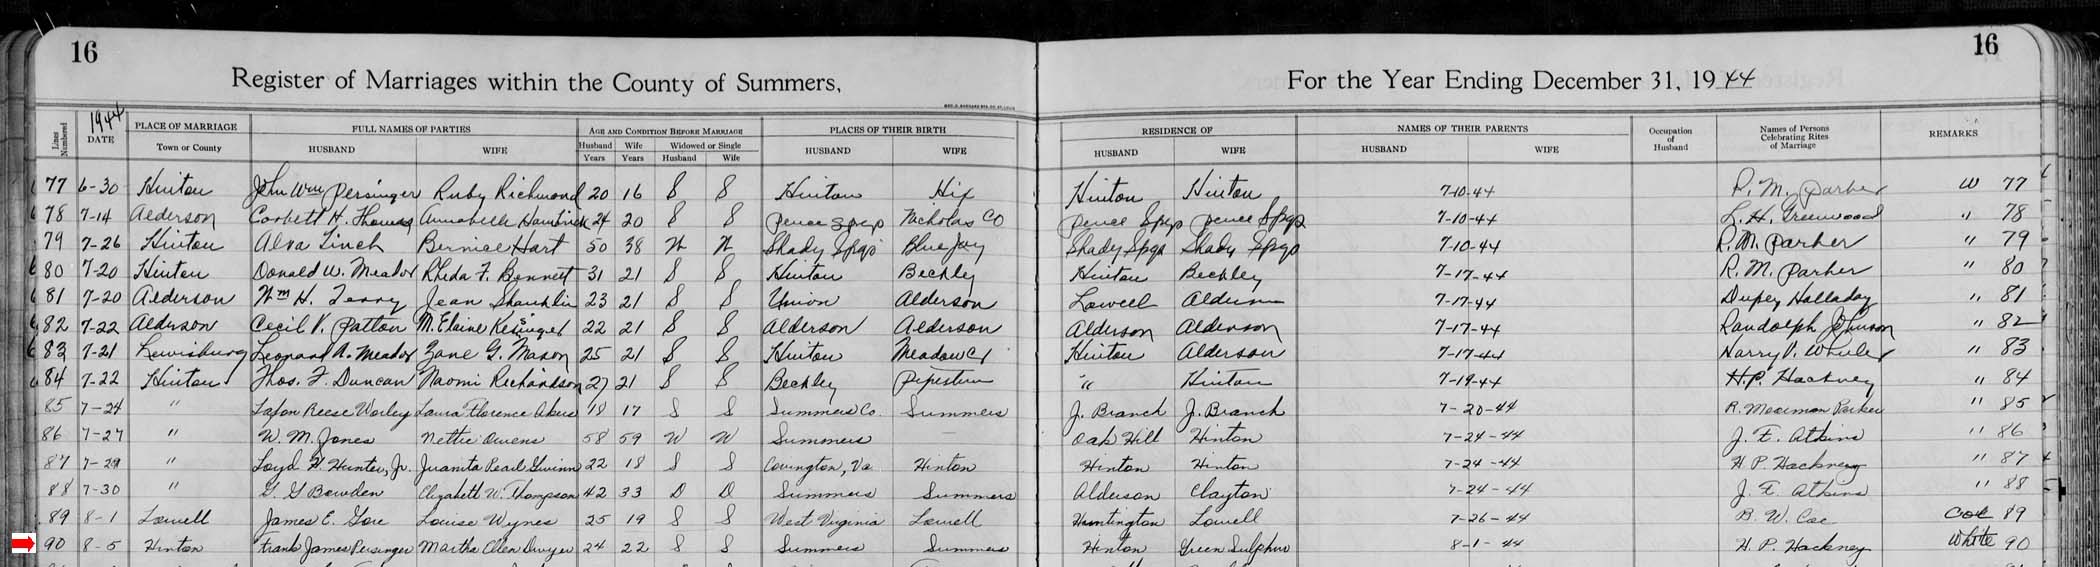 16 16
Register of Marriages within the County of Summers, For the Year Ending December 31, 1944
Lines Numbered 1944 DATE PLACE OF MARRIAGE Town or County FULL NAMES OF PARTIES HUSBAND WIFE AGE AND CONDITION BEFORE MARRIAGE Husband Years Wife Years Widowed or Single Husband Wife PLACES OF THEIR BIRTH HUSBAND WIFE RESIDENCE OF HUSBAND WIFE NAMES OF THEIR PARENTS HUSBAND WIFE Occupation of Husband Names of Persons Celebrating Rites of Marriage REMARKS
77 6-30 Hinton John Wm Persinger Ruby Richmond 20 16 S S Hinton Hix Hinton Hinton 7-10-44 R. M. Parker W 77
78 7-14 Alderson Corbett H. Thomas Annabelle 24 20 S S Pence Spgs Nicholas Co Pence Spgs Pence Spgs 7-10-44 L. H. Greenwood " 78
79 7-26 Hinton Alva Linch Bernice Hart 50 38 W W Shady Spgs Blue Jay Shady Spgs Shady Spgs 7-10-44 R. M. Parker " 79
80 7-20 Hinton Donald W. Meador Rheda F. Bennett 31 21 S S Hinton Beckley Hinton Beckley 7-17-44 R. M. Parker " 80
81 7-20 Alderson Wm H. Terry Jean Shanklin 23 21 S S Union Alderson Lowell Alderson 7-17-44 Holladay " 81
82 7-22 Alderson Cecil V. Patton M. Elaine Kesinger 22 21 S S Alderson Alderson Alderson Alderson 7-17-44 Randolph Johnson " 82
83 7-21 Lewisburg Leonard A. Meador Zane G. Mason 25 21 S S Hinton Meadow Cr Hinton Alderson 7-17-44 Harry V. Wheeler " 83
84 7-22 Hinton Thos. F. Duncan Naomi Richardson 27 21 S S Beckley Pipestem " Hinton 7-19-44 H. P. Hackney " 84
85 7-24 " Lafon Reese Worley Laura Florence Akers 18 17 S S Summers Co. Summers J. Branch J. Branch 7-20-44 R. Merriman Parker " 85
86 7-27 " W. M. Jones Nettie Owens 58 59 W W Summers — Oak Hill Hinton 7-24-44 J. E. Atkins " 86
87 7-29 " Loyd H. Hunter, Jr. Juanita Pearl Gwinn 22 18 S S Covington, Va. Hinton Hinton Hinton 7-24-44 H. P. Hackney " 87
88 7-30 " G. G Bowden Elizabeth W. Thompson 42 33 D D Summers Summers Alderson Clayton 7-24-44 J. E. Atkins " 88
89 8-1 Lowell James E. Gore Louise Wynes 25 19 S S West Virginia Lowell Huntington Lowell 7-26-44 B. W. Coe Col 89
90 8-5 Hinton Frank James Persinger Martha Ellen Dwyer 24 22 S S Summers Summers Hinton Green Sulphur 8-1-44 H. P. Hackney White 90